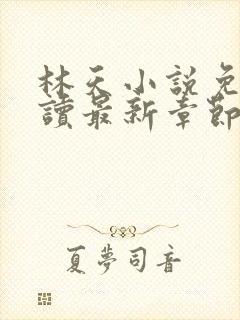 林天小説免
讀最新章節
夏夢司音